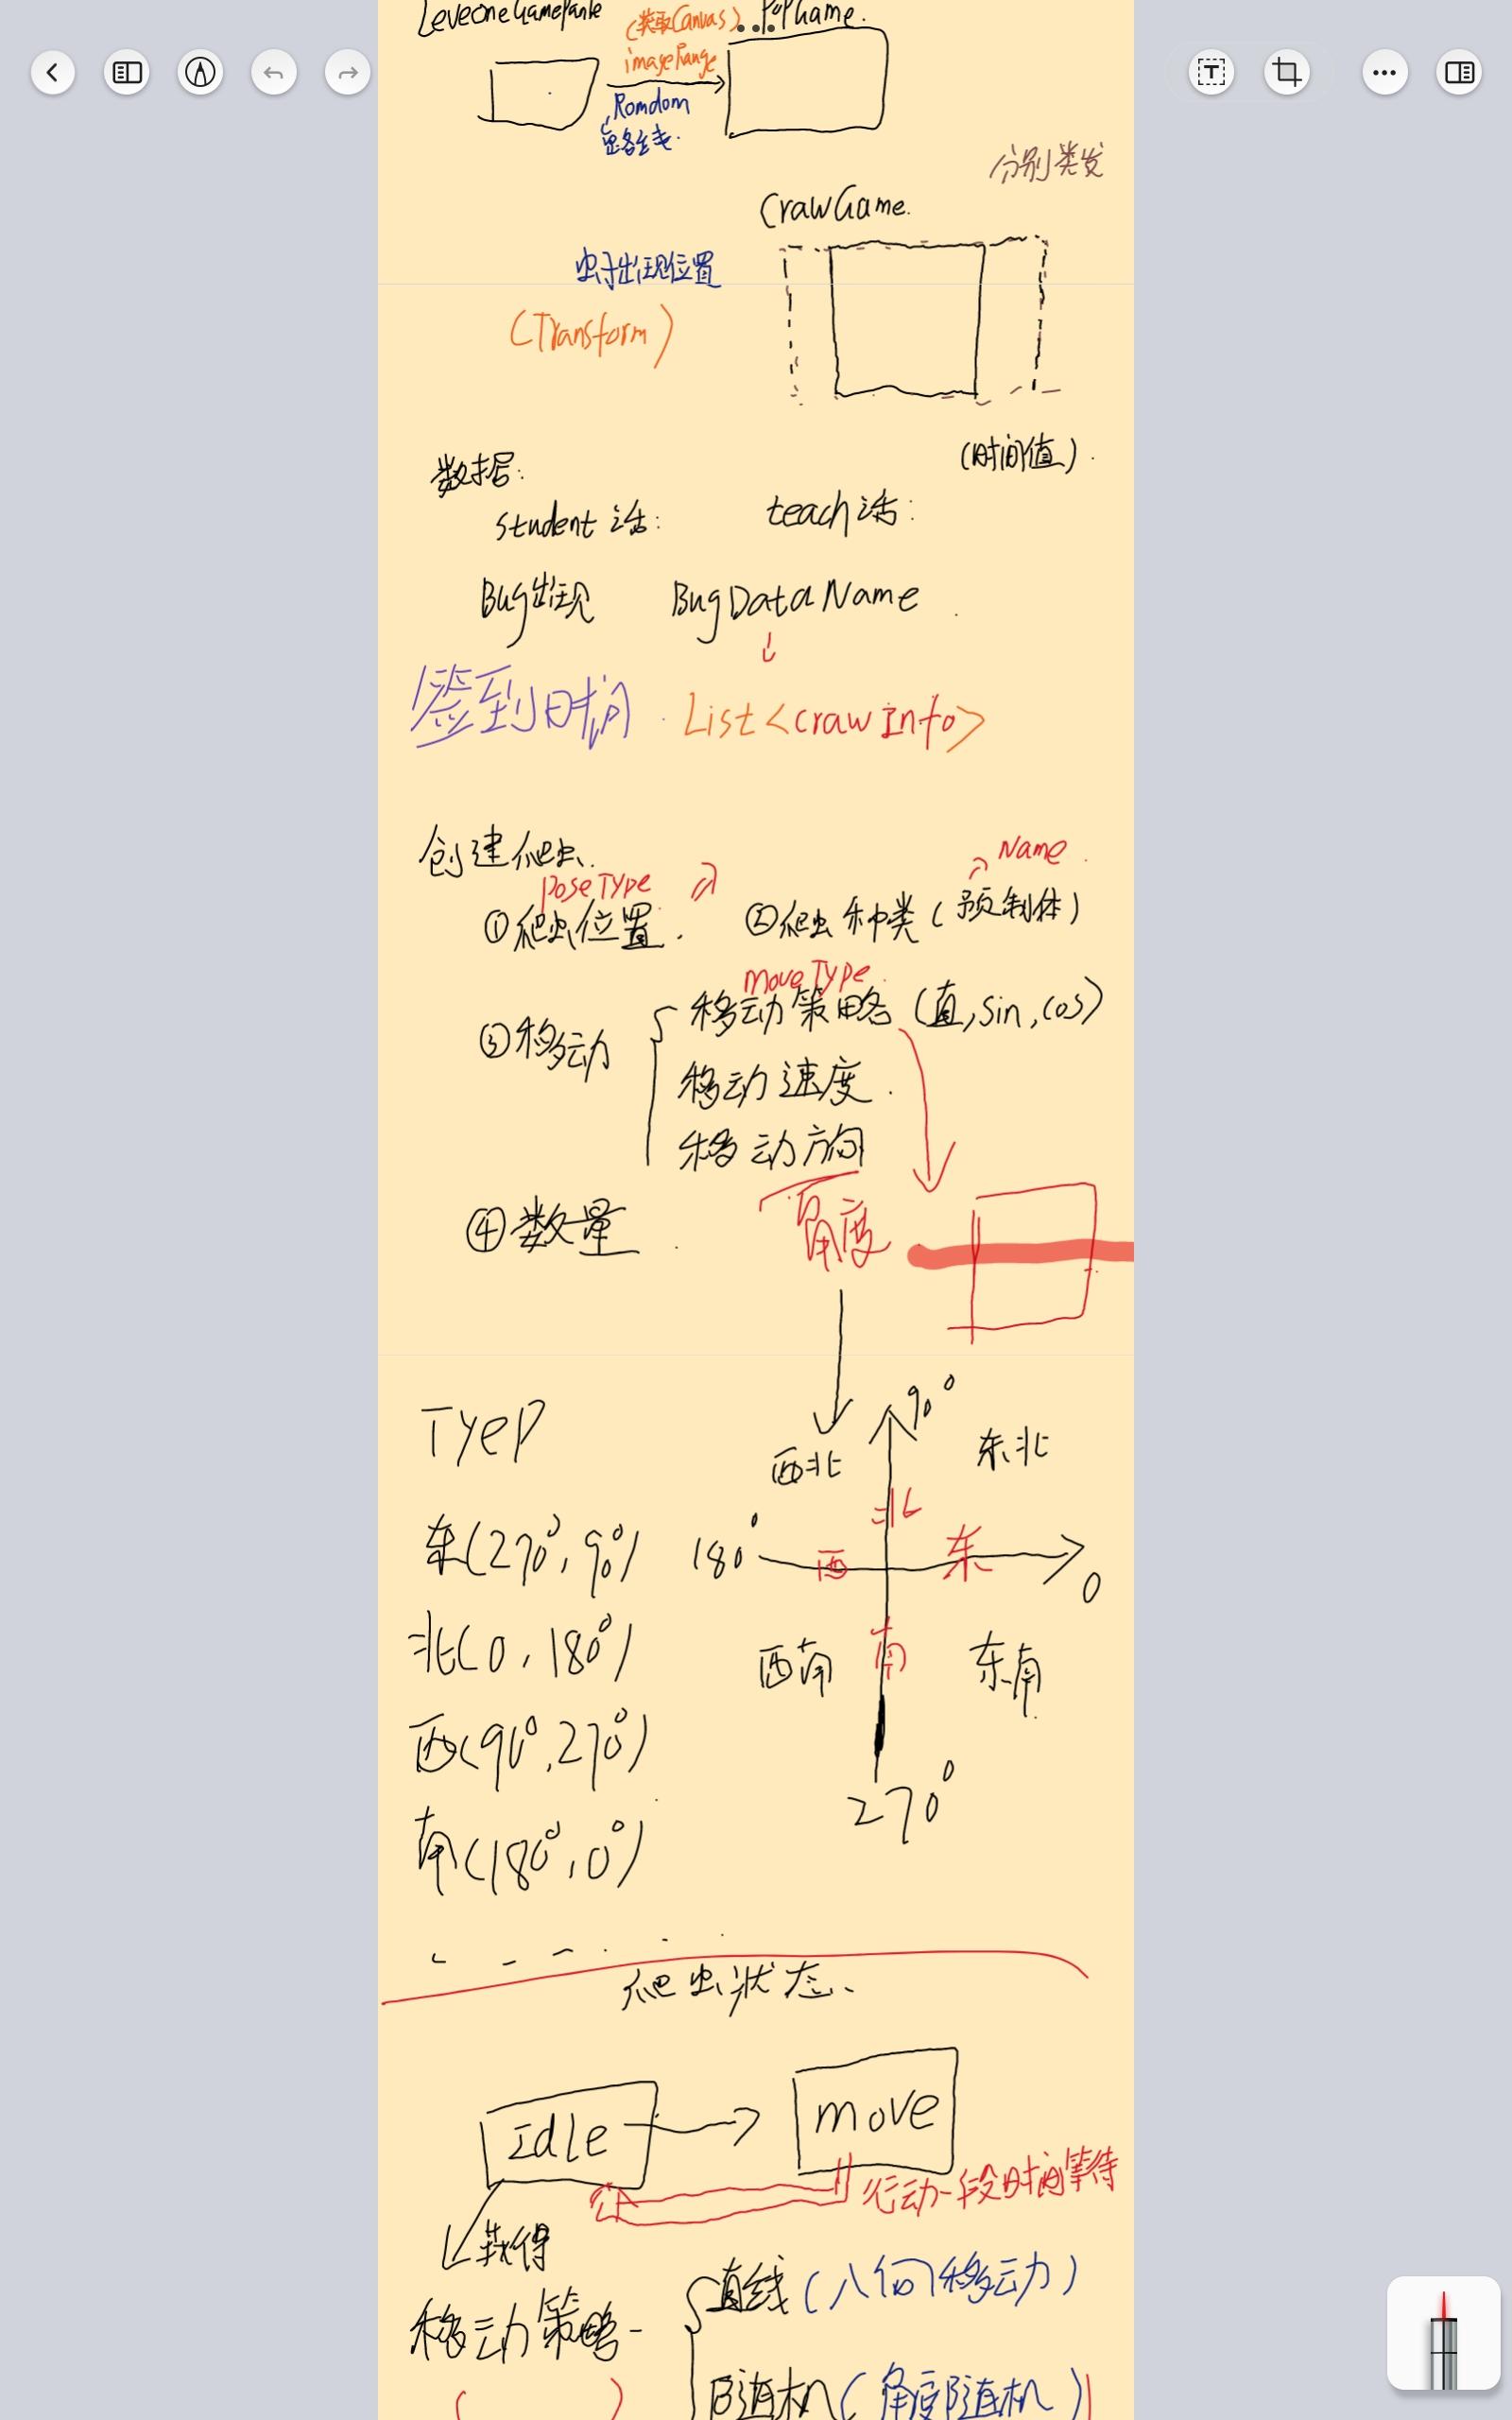 LeveoneGamePanle
PopGame.
(类取Canvas)
imageRange
Romdom
分别类发
CrawGame.
虫子出现位置
(Transform)
(时间值).
数据:
student 话:
teach 话:
Bug出现
BugDataName
签到时间
List<crawInfo>
创建爬虫.
Name
PoseType
①爬虫位置.
②爬虫种类(预制体)
moveType
③移动
移动策略(直,sin,cos)
移动速度.
移动方向
④数量
角度
TyeP
90°
西北
东北
北
东(270°,90°)
180°
西
东
0
北(0,180°)
西南
南
东南
西(90°,270°)
270°
南(180°,0°)
爬虫状态、
idle
move
行动一段时间等待
获得
移动策略-
直线(八向移动)
随机(角度随机)